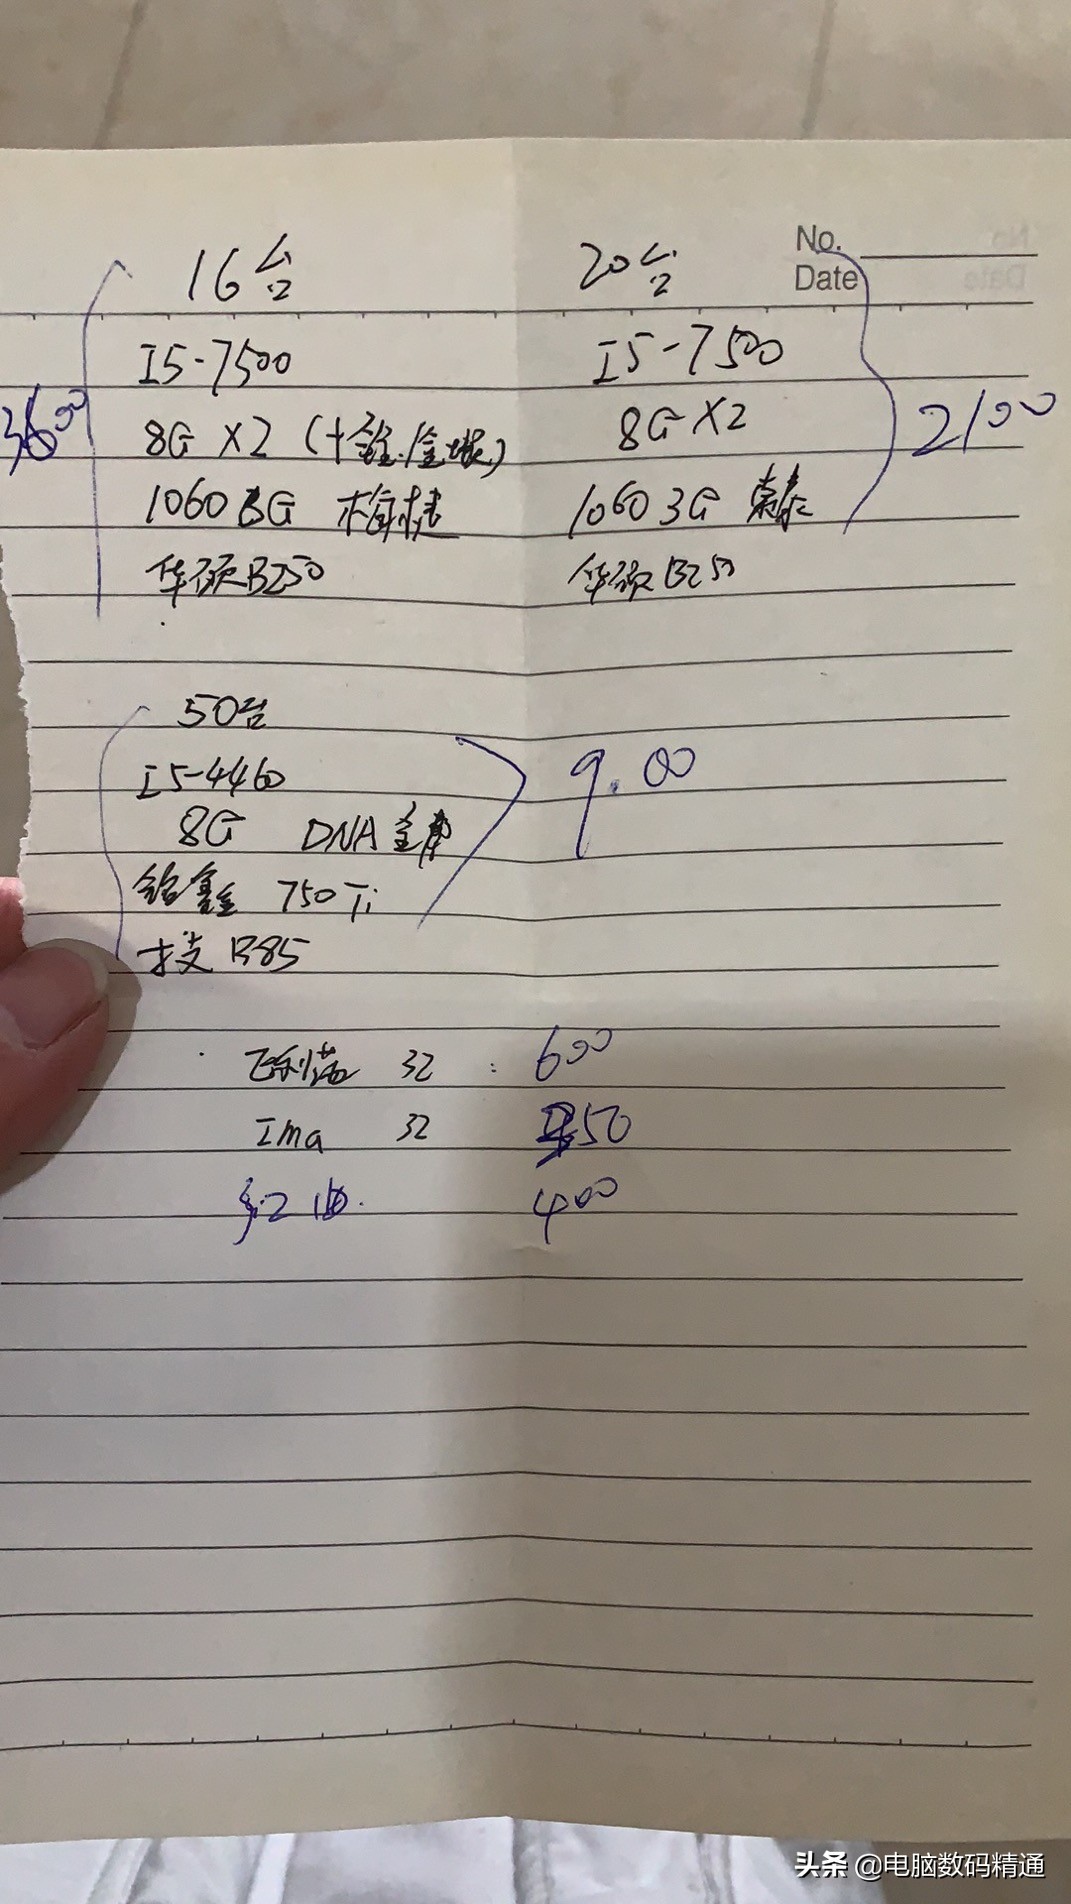 No.
Date
16台
I5-7500
8G X2 (十铨.金士顿)
1060 3G
华硕B250
3600
20台
I5-7500
8G X2
1060 3G 索泰
华硕B250
2100
50台
I5-4460
8G DNA
铭鑫 750Ti
技 B85
9.00
飞利浦 32 : 600
Ima 32 50
400
头条 @电脑数码精通